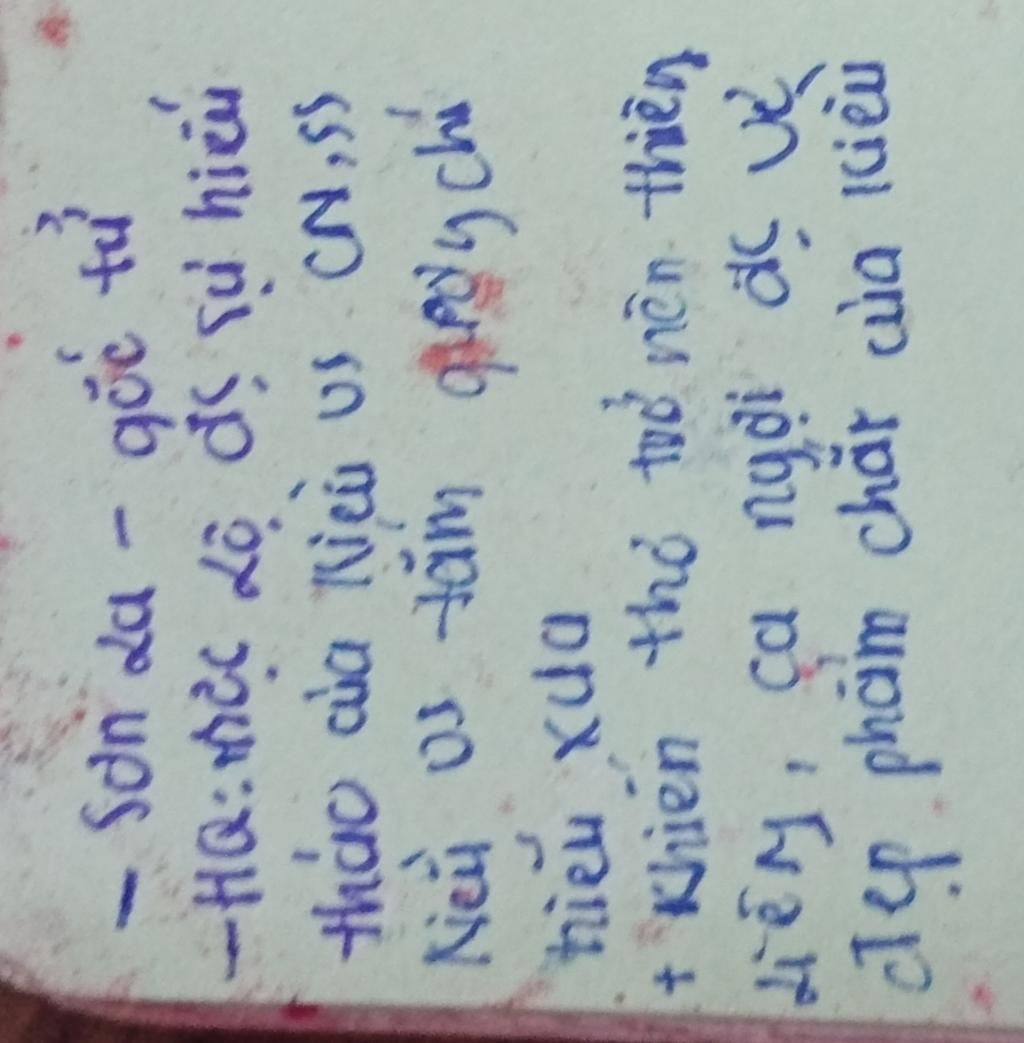 - Sân Lai - gốc tử
-HQ: bộc lộ đc sự hiếu
thảo của Kiều vs CM, ss
Kiều vs tấm gương chí
hiếu xưa
+ Khiến thơ trở nên thiêng
liêng, ca ngợi đc vẻ
đẹp phẩm chất của Kiều